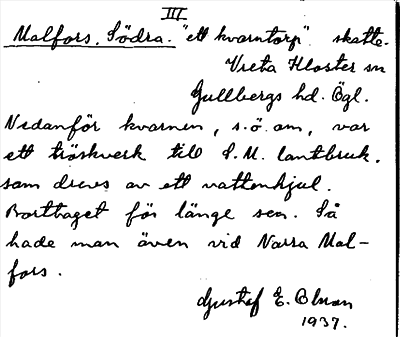 III
Malfors. Södra. "ett kvarntorp" skatte.
Vreta Kloster sn
Gullbergs hd. Ögl.
Nedanför kvarnen, s.ö. om, var
ett tröskverk till S. M. lantbruk.
som drevs av ett vattenhjul.
Borttaget för länge sen. Så
hade man även vid Norra Mal-
fors.
Gustaf E. Olman
1937.